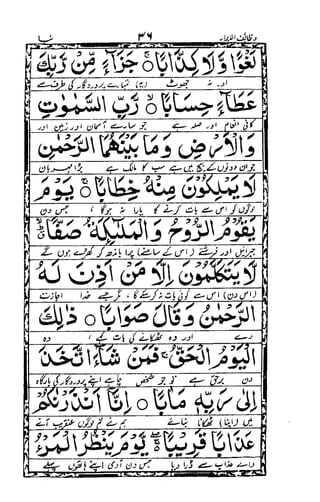 وظائف الابرار ۳۶ نبا
لَغْوًا وَّلَا كِذّٰبًا ○ جَزَآءً مِّنْ رَّبِّكَ
اور نہ جھوٹ تمہارے پروردگار کی طرف سے
عَطَآءً حِسَابًا ○ رَّبِّ السَّمٰوٰتِ
کافی انعام اور صلہ ہے جو سارے آسمان اور زمین اور
وَالْاَرْضِ وَمَا بَيْنَهُمَا الرَّحْمٰنِ
جو ان دونوں کے بیچ میں ہے سب کا مالک ہے بڑا مہربان
لَا يَمْلِكُوْنَ مِنْهُ خِطَابًا ○ يَوْمَ
لوگوں کو اس سے بات کرنے کا یارا نہ ہوگا جس دن
يَقُوْمُ الرُّوْحُ وَالْمَلٰٓئِكَةُ صَفًّا
جبرائیل اور فرشتے (اس کے سامنے) پرا باندھ کر کھڑے ہوں گے
لَا يَتَكَلَّمُوْنَ اِلَّا مَنْ اَذِنَ لَهُ
(اس دن) اس سے کوئی بات نہ کر سکے گا مگر جسے خدا اجازت
الرَّحْمٰنُ وَقَالَ صَوَابًا ○ ذٰلِكَ
دے اور وہ ٹھکانے کی بات کہے وہ
الْيَوْمُ الْحَقُّ فَمَنْ شَآءَ اتَّخَذَ
دن برحق ہے تو جو شخص چاہے اپنے پروردگار کی بارگاہ
اِلٰى رَبِّهٖ مَاٰبًا ○ اِنَّآ اَنْذَرْنٰكُمْ
میں (اپنا) ٹھکانا بنائے ہم نے تم لوگوں کو عنقریب آنے
عَذَابًا قَرِيْبًا يَّوْمَ يَنْظُرُ الْمَرْءُ
والے عذاب سے ڈرا دیا جس دن آدمی اپنے ہاتھوں پہلے